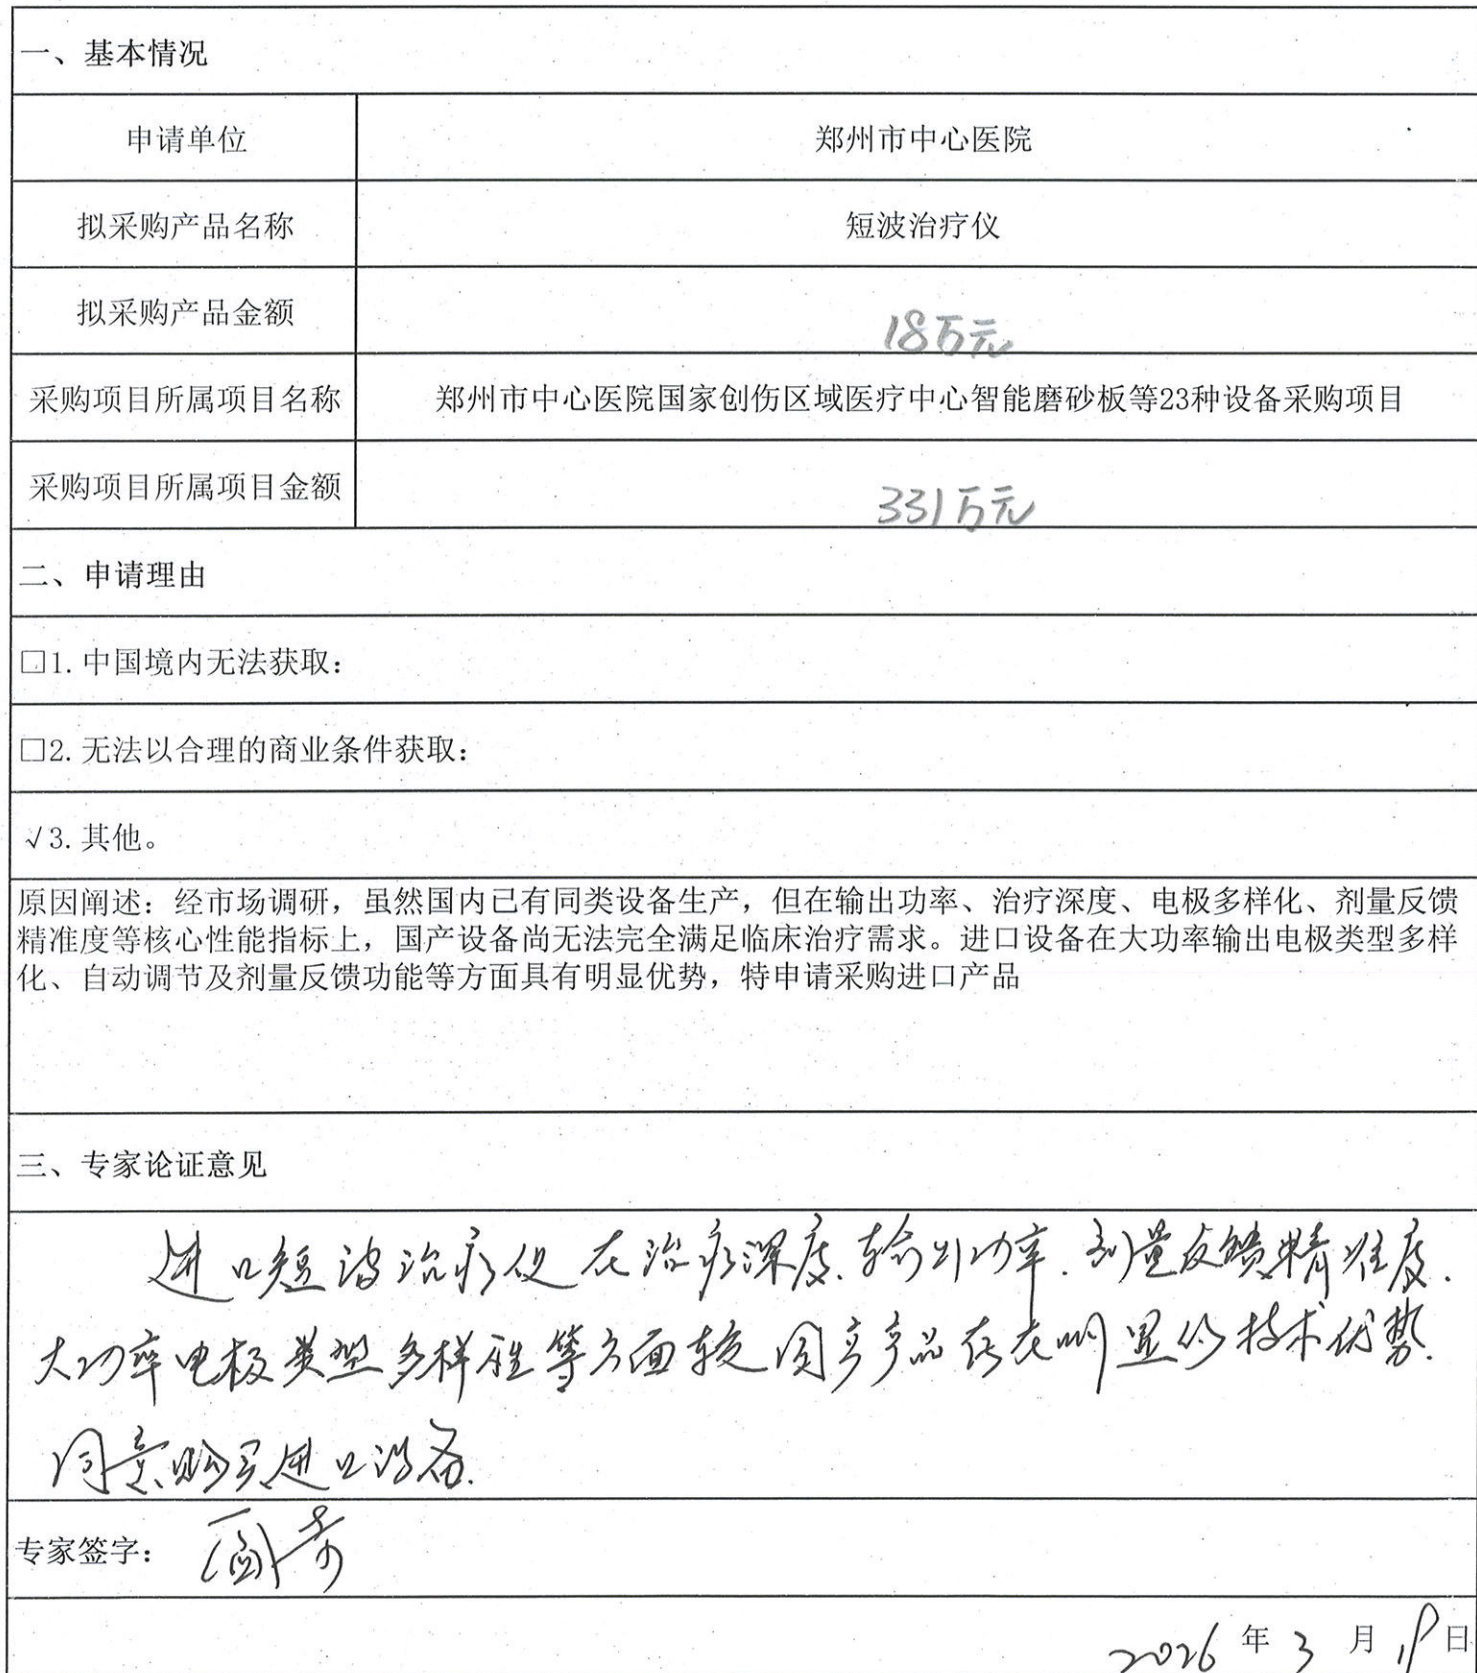 一、基本情况
申请单位 郑州市中心医院
拟采购产品名称 短波治疗仪
拟采购产品金额 18万元
采购项目所属项目名称 郑州市中心医院国家创伤区域医疗中心智能磨砂板等23种设备采购项目
采购项目所属项目金额 331万元
二、申请理由
□1.中国境内无法获取：
□2.无法以合理的商业条件获取：
√3.其他。
原因阐述：经市场调研，虽然国内已有同类设备生产，但在输出功率、治疗深度、电极多样化、剂量反馈
精准度等核心性能指标上，国产设备尚无法完全满足临床治疗需求。进口设备在大功率输出电极类型多样
化、自动调节及剂量反馈功能等方面具有明显优势，特申请采购进口产品
三、专家论证意见
进口短波治疗仪在治疗深度、输出功率、剂量反馈精准度、
大功率电极类型多样性等方面较国产产品存在明显的技术优势.
同意购买进口设备.
专家签字：
2026年3月 日